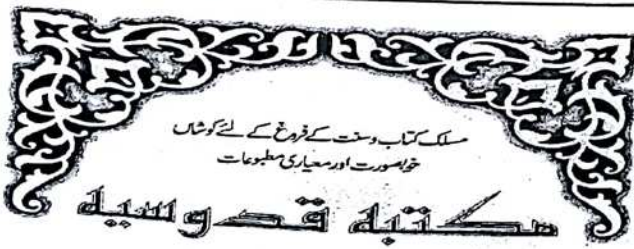 مسلک کتاب و سنت کے فروغ کے لئے کوشاں
خوبصورت اور معیاری مطبوعات
مکتبہ قدوسیہ